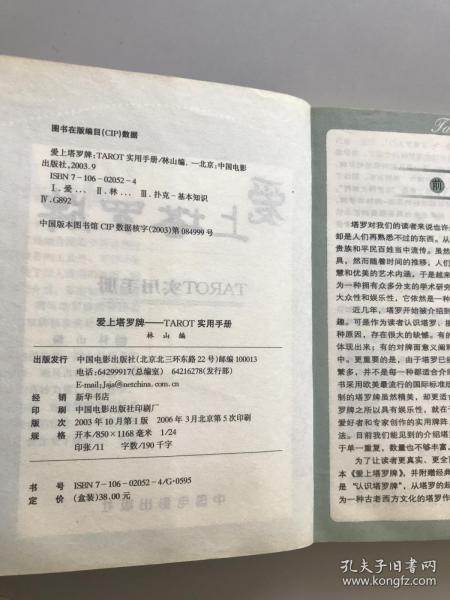 图书在版编目(CIP)数据
爱上塔罗牌:TAROT 实用手册/林山编.—北京:中国电影
出版社,2003.9
ISBN 7-106-02052-4
Ⅰ.爱… Ⅱ.林… Ⅲ.扑克-基本知识
Ⅳ.G892
中国版本图书馆 CIP 数据核字(2003)第 084999 号
爱上塔罗牌——TAROT 实用手册
林 山 编
出版发行 中国电影出版社(北京北三环东路 22 号)邮编 100013
电话:64299917(总编室) 64216278(发行部)
E-mail:Jsja@netchina.com.cn
经 销 新华书店
印 刷 中国电影出版社印刷厂
版 次 2003 年 10 月第 1 版 2006 年 3 月北京第 5 次印刷
规 格 开本/850×1168 毫米 1/24
印张/11 字数/190 千字
书 号 ISBN 7-106-02052-4/G·0595
定 价 (盒装)38.00 元
前
塔罗对我们的读者来说也许
却是人们再熟悉不过的东西。从
贵族和平民百姓当中流传。虽然
具,然而随着时间的推移,人们
慧和优美的艺术内涵,于是越来
为一种拥有众多分支的学术研究
大众性和娱乐性,它依然是一种
近几年,塔罗开始被介绍到
趣。可是作为读者认识塔罗、接
种原因,存在很大的缺憾。有的
体现出来;有的对牌面意义阐释
中。更重要的是,由于塔罗已经
繁多,并不是每一种都适合娱
书采用欧美最流行的国际标准版
制的塔罗牌虽然精美,却更适合
罗牌之所以具有娱乐性,就在于
爱好者和专家创作的实用牌阵,
法。目前我们能见到的介绍塔罗
于单一重复,数量也不够丰富。
为了让读者更真实、更全
本《爱上塔罗牌》,并附赠经典
是“认识塔罗牌”,从塔罗的起
为一种古老西方文化的塔罗作
孔夫子旧书网
www.kongfz.com